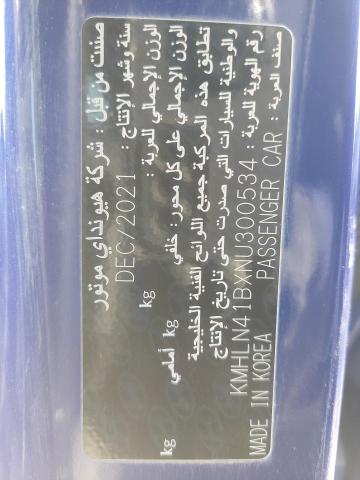 صنعت من قبل : شركة هيونداي موتور
سنة وشهر الإنتاج : DEC/2021
الوزن الإجمالي للعربة : kg
الوزن الإجمالي على كل محور : خلفي kg أمامي kg
تطابق هذه المركبة جميع اللوائح الفنية الخليجية
والوطنية للسيارات التي صدرت حتى تاريخ الإنتاج
رقم الهوية للعربة : KMHLN41BXNU300534
صنف العربة : PASSENGER CAR
MADE IN KOREA